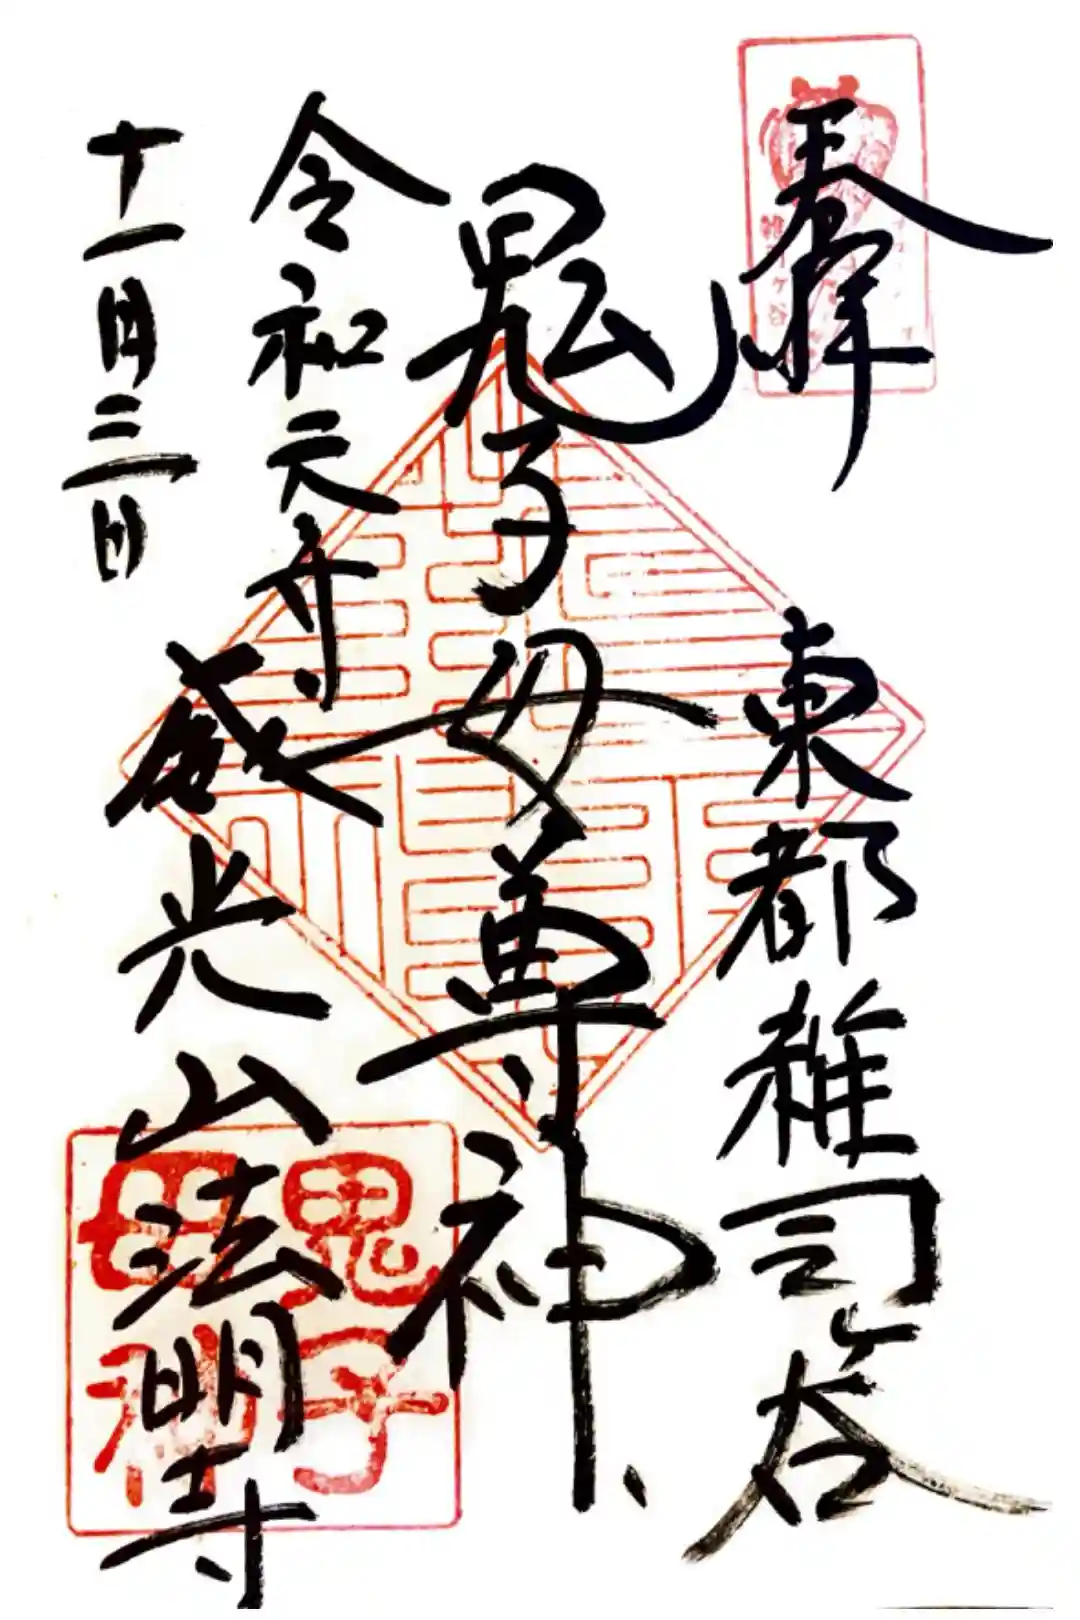 奉拝
東都雑司ヶ谷
鬼子母尊神
令和元年
十一月三日
威光山法明寺
鬼子
母神
雑司ヶ谷